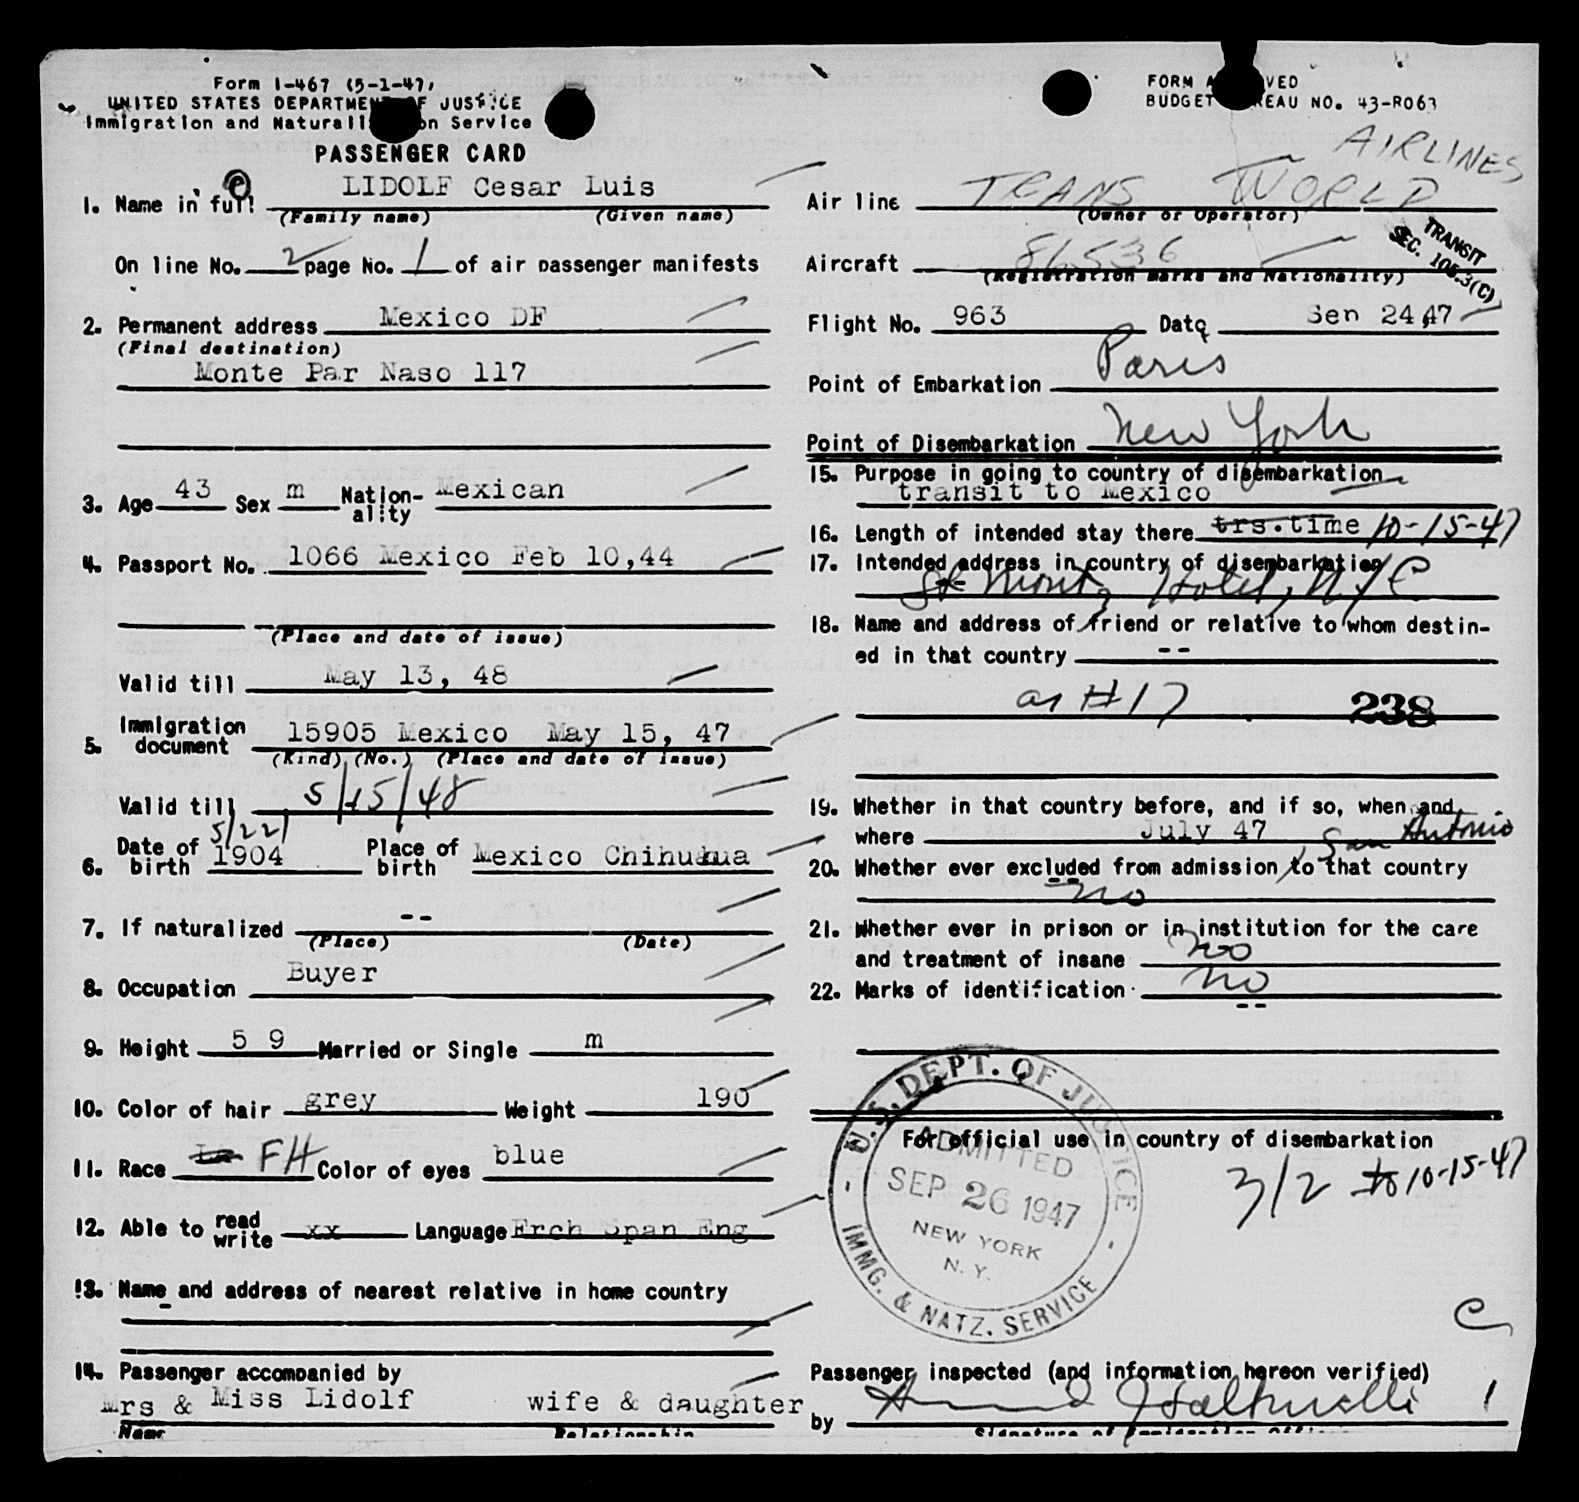 Form I-467 (5-1-47)
UNITED STATES DEPARTMENT OF JUSTICE
Immigration and Naturalization Service
PASSENGER CARD
1. Name in full LIDOLF Cesar Luis
(Family name) (Given name)
On line No. 2 page No. 1 of air passenger manifests
2. Permanent address Mexico DF
(Final destination)
Monte Par Naso 117
3. Age 43 Sex m Nation-ality Mexican
4. Passport No. 1066 Mexico Feb 10,44
(Place and date of issue)
Valid till May 13, 48
5. Immigration document 15905 Mexico May 15, 47
(Kind) (No.) (Place and date of issue)
Valid till 5/15/48
5/22/
6. Date of birth 1904 Place of birth Mexico Chihuhua
7. If naturalized --
(Place) (Date)
8. Occupation Buyer
9. Height 5 9 Married or Single m
10. Color of hair grey Weight 190
11. Race FH Color of eyes blue
12. Able to read write xx Language Frch Span Eng
13. Name and address of nearest relative in home country
-
14. Passenger accompanied by
Mrs & Miss Lidolf wife & daughter
Name Relationship
FORM APPROVED
BUDGET BUREAU NO. 43-R063
AIRLINES
Air line TRANS WORLD
(Owner or Operator)
TRANSIT
SEC. 105.3(C)
Aircraft 86536
(Registration marks and Nationality)
Flight No. 963 Date Sep 24,47
Point of Embarkation Paris
Point of Disembarkation New York
15. Purpose in going to country of disembarkation
transit to Mexico
16. Length of intended stay there trs.time 10-15-47
17. Intended address in country of disembarkation
St Moritz Hotel, NYC
18. Name and address of friend or relative to whom destin-
ed in that country --
as #17 238
19. Whether in that country before, and if so, when and
where July 47, San Antonio
20. Whether ever excluded from admission to that country
no
21. Whether ever in prison or in institution for the care
and treatment of insane no
22. Marks of identification no
--
For official use in country of disembarkation
3/2 to 10-15-47
U.S. DEPT. OF JUSTICE
ADMITTED
SEP 26 1947
NEW YORK
N. Y.
IMMG. & NATZ. SERVICE
C
Passenger inspected (and information hereon verified)
by 1
Signature of Immigration Officer